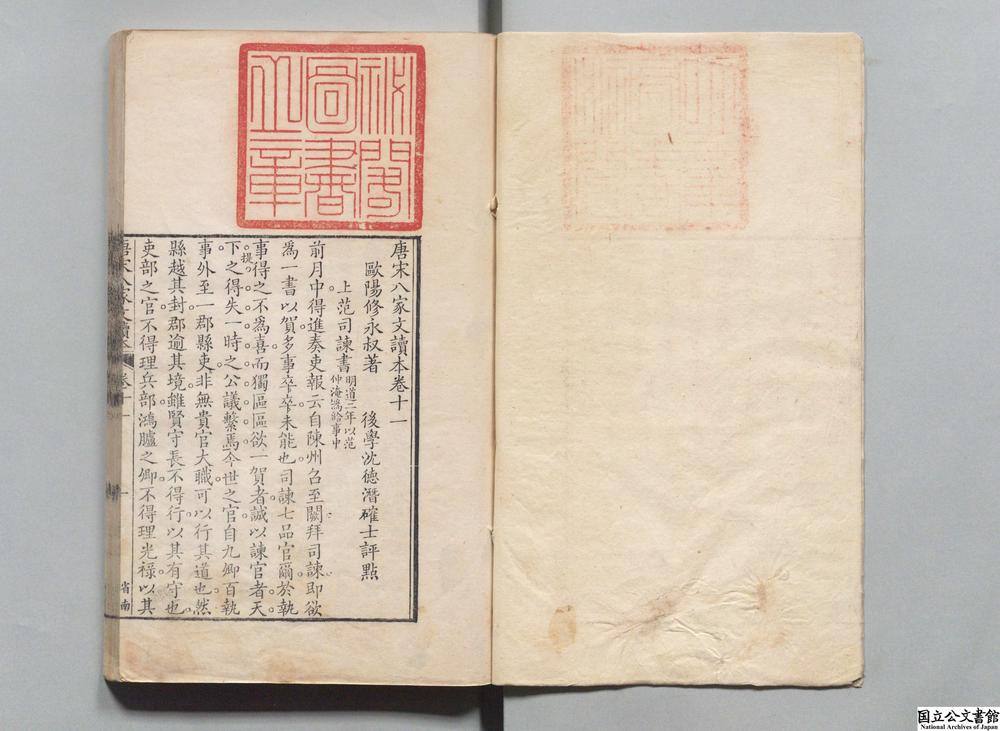 秘閣
圖書
之章
唐宋八家文讀本卷十一
歐陽修永叔著 後學沈德潛確士評點
上范司諫書 明道二年以范
仲淹爲給事中
前月中得進奏吏報云自陳州召至闕拜司諫即欲
爲一書以賀多事卒卒未能也司諫七品官爾於執
事得之不爲喜而獨區區欲一賀者誠以諫官者天
提
下之得失一時之公議繫焉今世之官自九卿百執
事外至一郡縣吏非無貴官大職可以行其道也然
縣越其封郡逾其境雖賢守長不得行以其有守也
吏部之官不得理兵部鴻臚之卿不得理光祿以其
唐宋八家文讀本 卷十一 一 省南
国立公文書館
National Archives of Japan